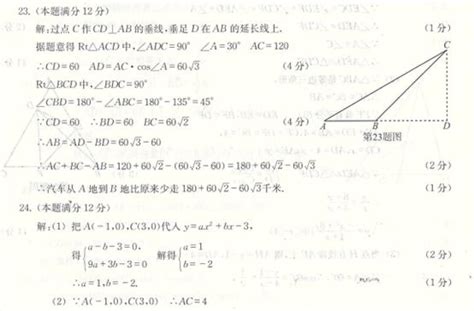 23. (本题满分 12 分)
解:过点 C 作 CD⊥AB 的垂线,垂足 D 在 AB 的延长线上. (1 分)
据题意得 Rt△ACD 中,∠ADC=90° ∠A=30° AC=120
∴CD=60 AD=AC·cos∠A=60√3 (4 分)
Rt△BCD 中,∠BDC=90°
∠CBD=180°-∠ABC=180°-135°=45°
∵CD=60 ∴BD=60 BC=60√2 (4 分)
∴AB=AD-BD=60√3-60
∴AC+BC-AB=120+60√2-(60√3-60)=180+60√2-60√3 (2 分)
∴汽车从 A 地到 B 地比原来少走 180+60√2-60√3千米. (1 分)
C
A B D
第23题图
24. (本题满分 12 分)
解:(1) 把 A(-1,0),C(3,0)代人 y=ax²+bx-3,
得{a-b-3=0, 解得{a=1
9a+3b-3=0 b=-2 (2 分)
∴a=1,b=-2. (1 分)
(2) ∵A(-1,0),C(3,0) ∴AC=4